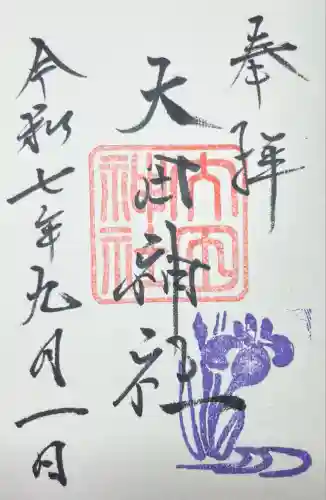 奉拝
天田神社
令和七年九月一日
天田
神社